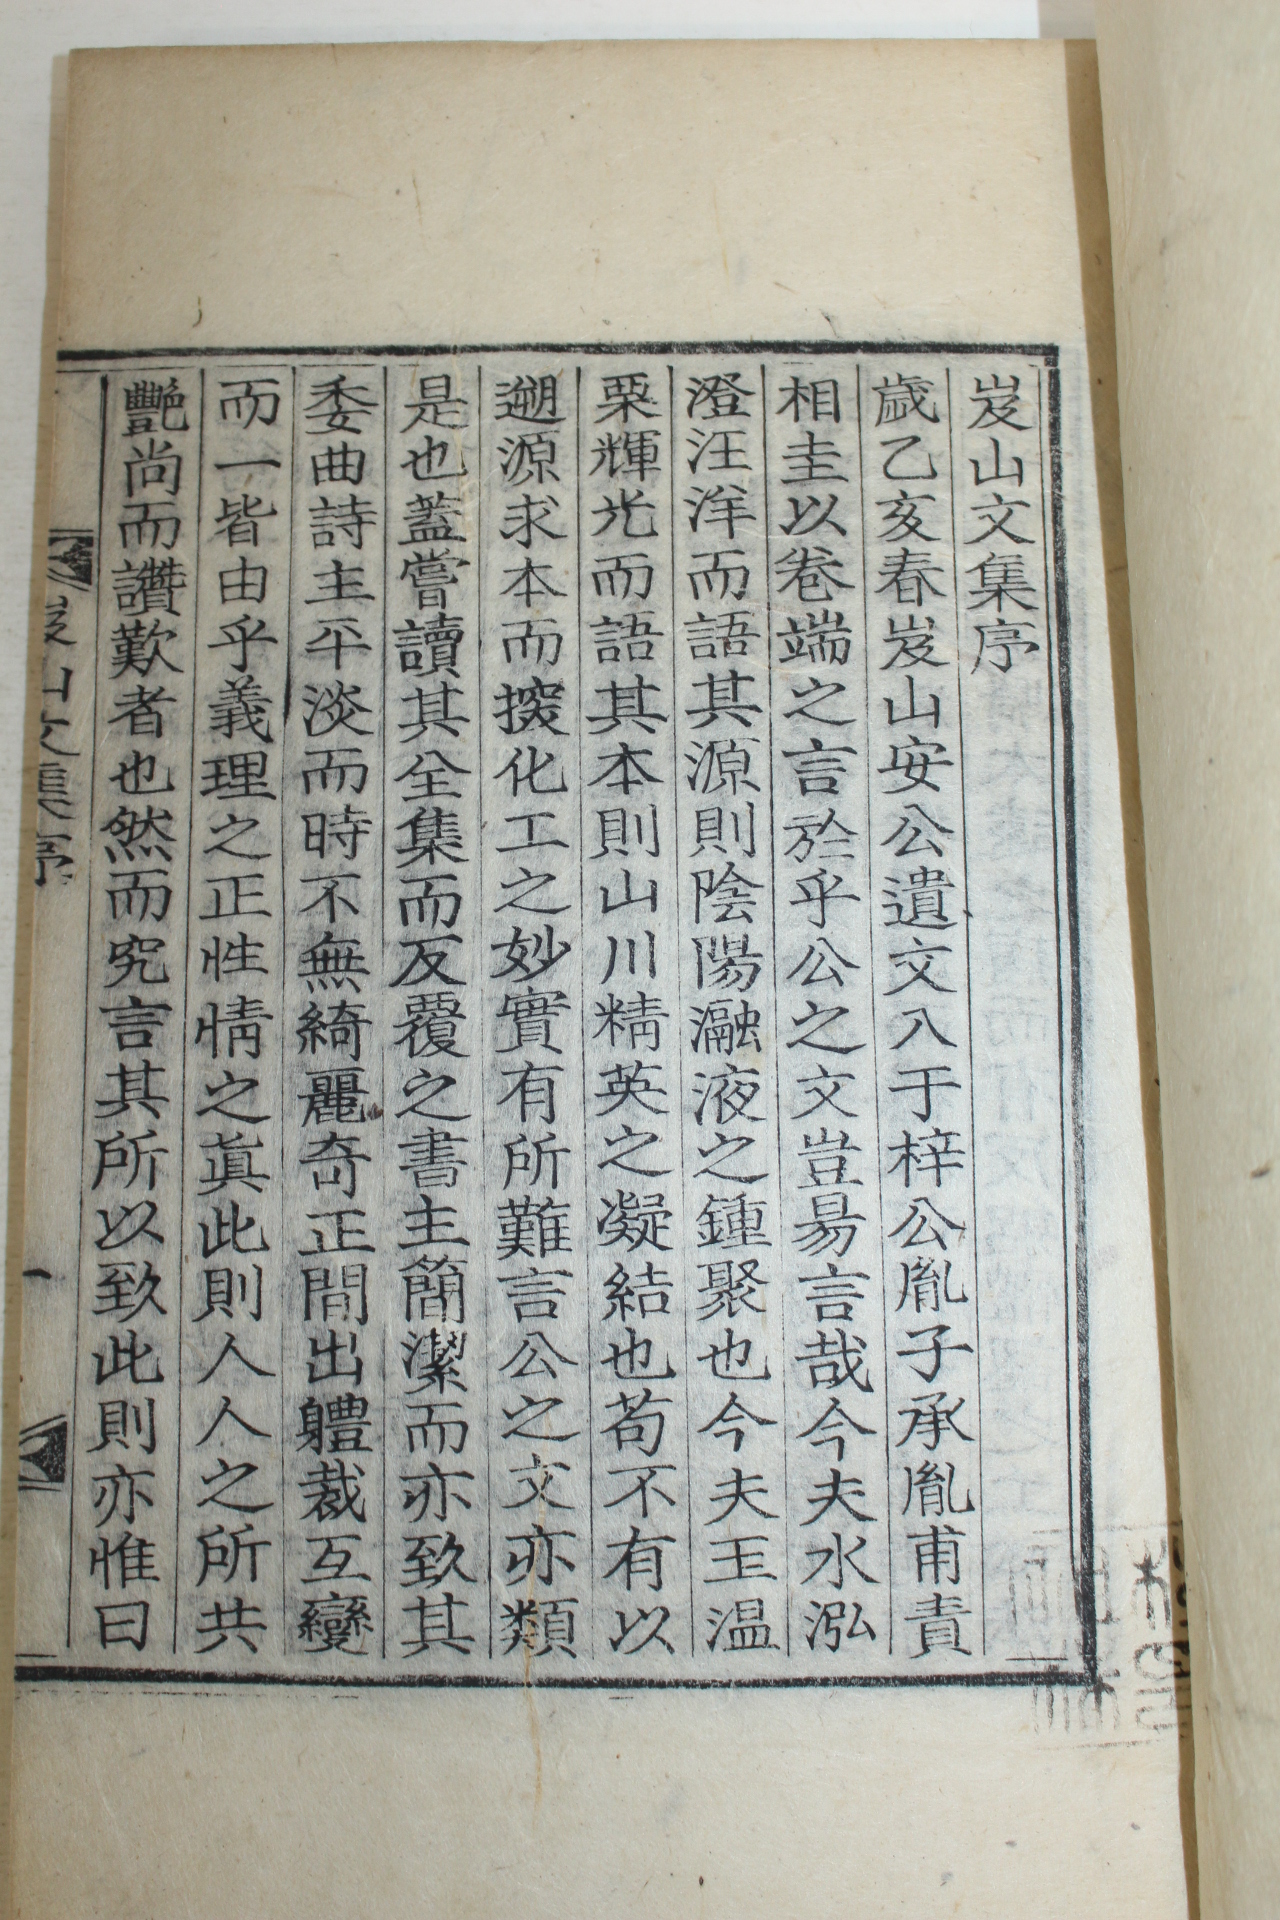 岌山文集序
歲乙亥春岌山安公遺文入于梓公胤子承胤甫責
相圭以卷端之言於乎公之文豈易言哉今夫水泓
澄汪洋而語其源則陰陽瀜液之鍾聚也今夫玉温
栗輝光而語其本則山川精英之凝結也苟不有以
遡源求本而㨕化工之妙實有所難言公之文亦類
是也蓋嘗讀其全集而反覆之書主簡潔而亦致其
委曲詩主平淡而時不無綺麗奇正間出軆裁互變
而一皆由乎義理之正性情之眞此則人人之所共
艷尚而讚歎者也然而究言其所以致此則亦惟曰
岌山文集序
一